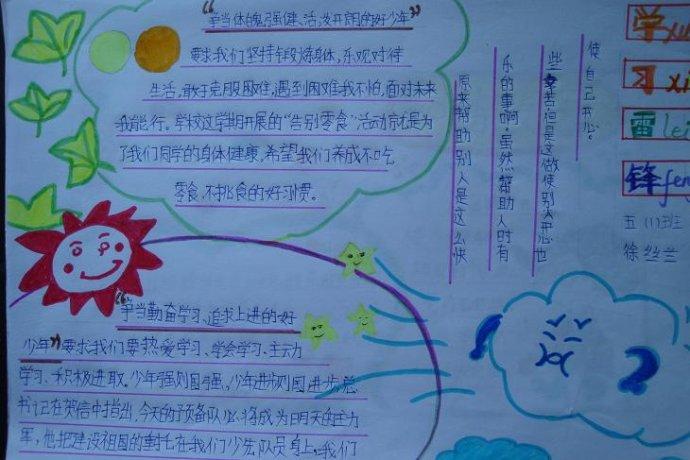 “争当体魄强健、活泼开朗的好少年”
要求我们坚持锻炼身体,乐观对待
生活,敢于克服困难,遇到困难我不怕,面对未来
我能行。学校这学期开展的“告别零食”活动就是为
了我们同学的身体健康,希望我们养成不吃
零食,不挑食的好习惯。
原来帮助别人是这么快
乐的事啊,虽然帮助人时有
些辛苦,但是这做使别人开心也
使自己开心。
学xu
习xi
雷lei
锋feng
五(1)班
徐丝兰
“争当勤奋学习、追求上进的好
少年”要求我们要热爱学习、学会学习、主动
学习、积极进取。少年强则国强,少年进步则国进步,总
书记在贺信中指出,今天的预备队必将成为明天的主力
军,他把建设祖国的重托在我们少先队员身上。我们